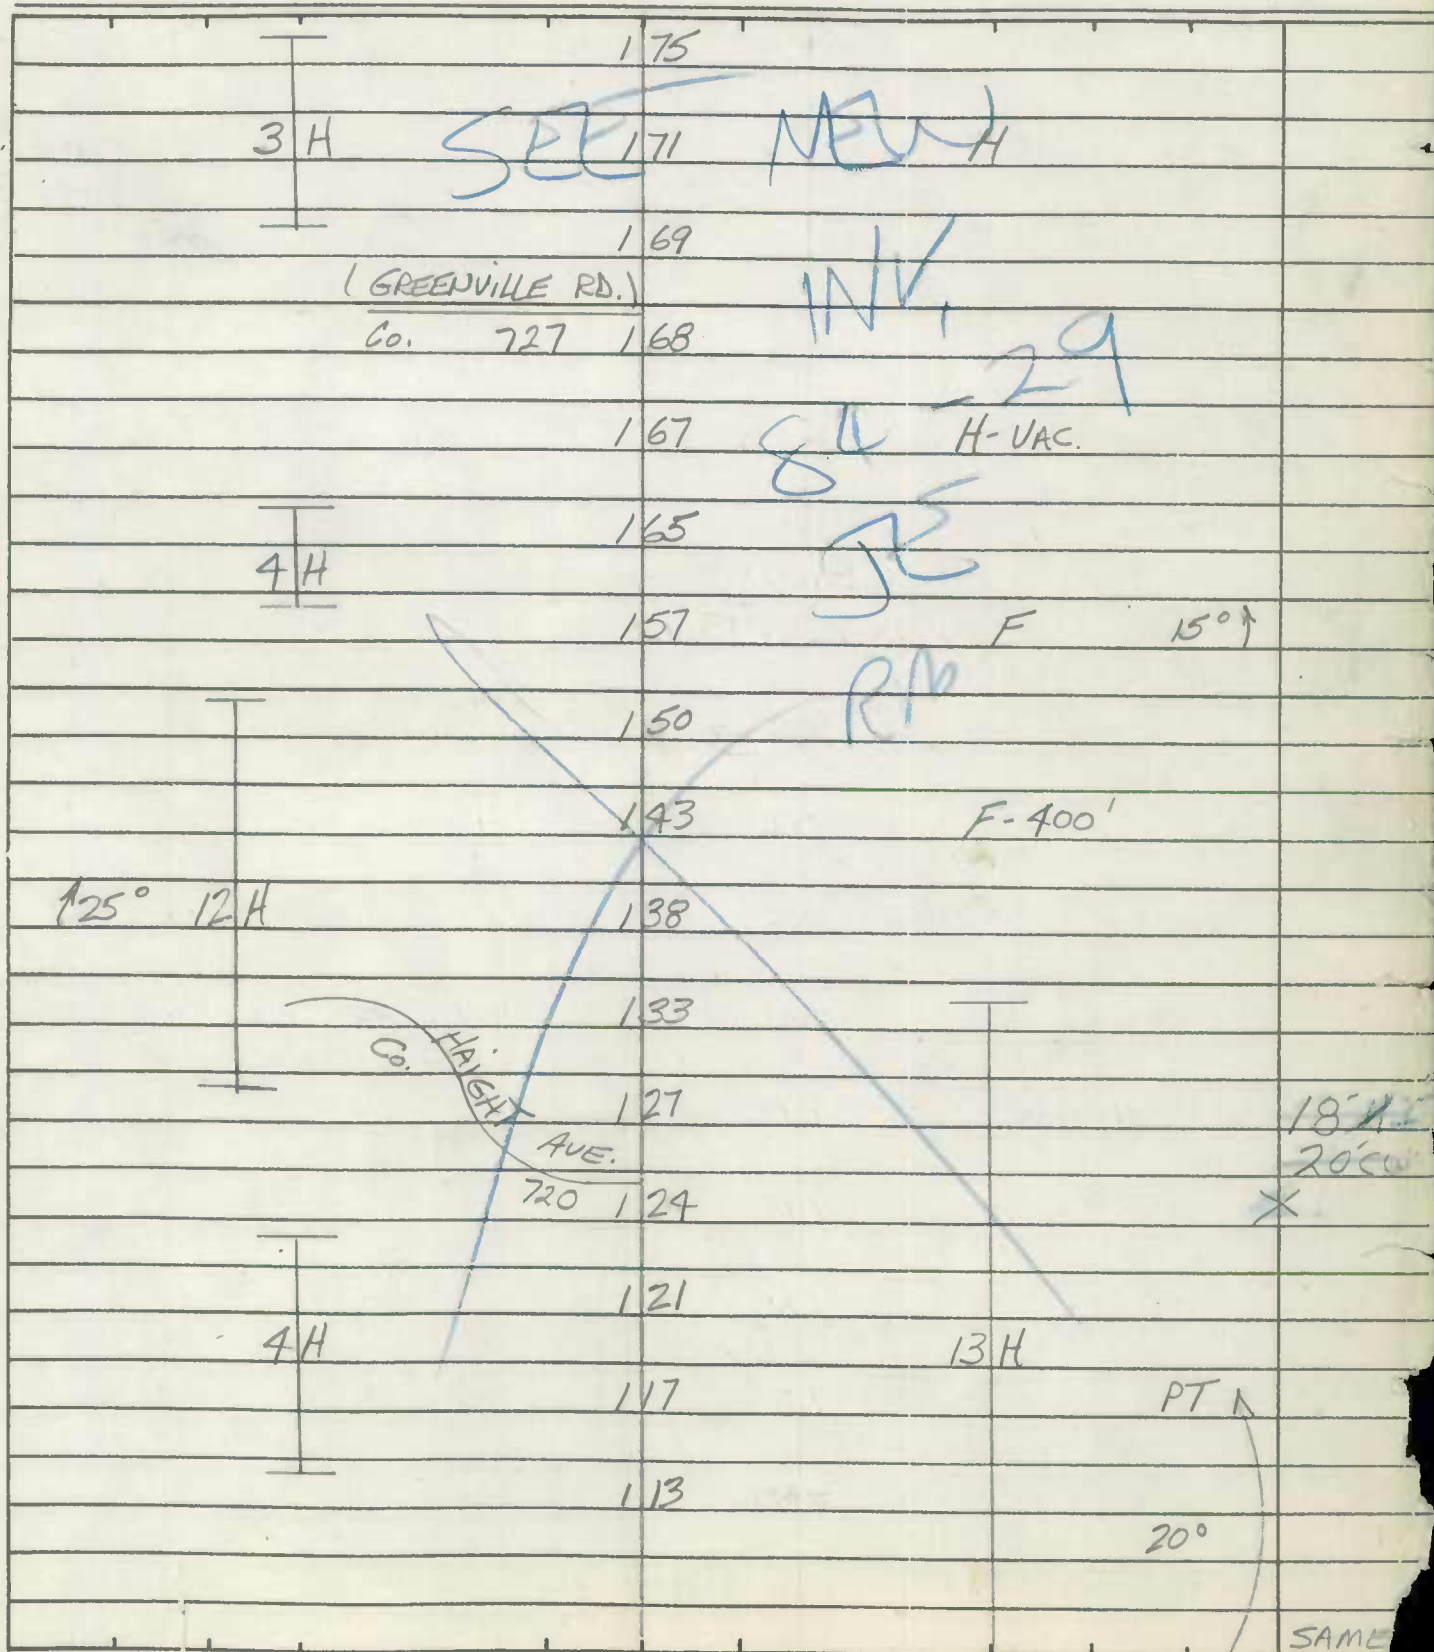 1 75
3 H SEE 1 71 NEW H
1 69
(GREENVILLE RD.) INV.
Co. 727 1 68
- 29
1 67 84 H-VAC.
1 65 JE
4 H
1 57 F 15°↑
1 50 RM
1 43 F-400'
↑25° 12 H 1 38
1 33
Co. HAIGHT AVE.
1 27 18'
20'
720 1 24 X
1 21
4 H 13 H
1 17 PT
1 13
20°
SAME